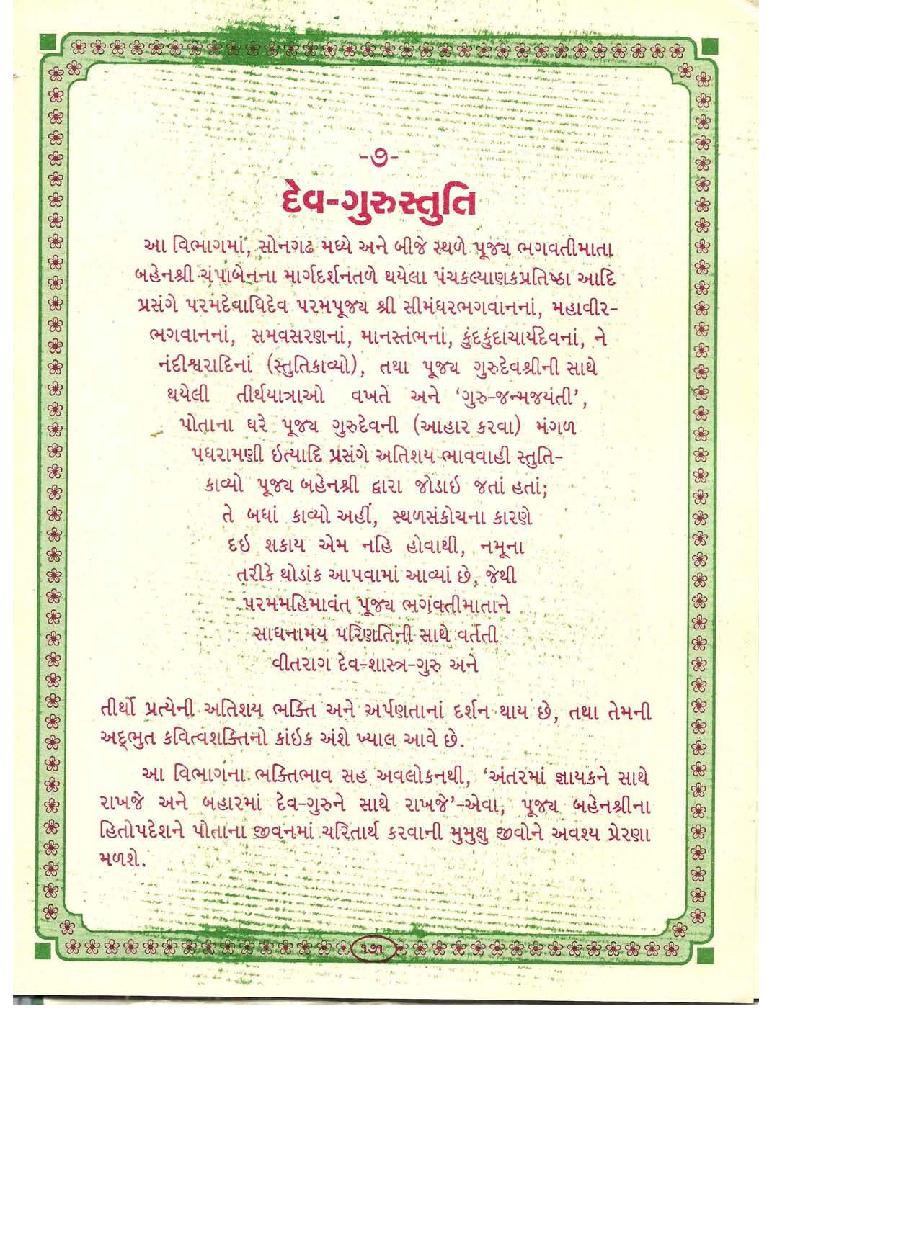 -૭-
દેવ-ગુરુસ્તુતિ
આ વિભાગમાં, સોનગઢ મધ્યે અને બીજે સ્થળે પૂજ્ય ભગવતીમાતા
બહેનશ્રી ચંપાબેનના માર્ગદર્શનતળે થયેલા પંચકલ્યાણકપ્રતિષ્ઠા આદિ
પ્રસંગે પરમદેવાધિદેવ પરમપૂજ્ય શ્રી સીમંધરભગવાનનાં, મહાવીર-
ભગવાનનાં, સમવસરણનાં, માનસ્તંભનાં, કુંદકુંદાચાર્યદેવનાં, ને
નંદીશ્વરાદિનાં (સ્તુતિકાવ્યો), તથા પૂજ્ય ગુરુદેવશ્રીની સાથે
થયેલી તીર્થયાત્રાઓ વખતે અને ‘ગુરુ-જન્મજયંતી’,
પોતાના ઘરે પૂજ્ય ગુરુદેવની (આહાર કરવા) મંગળ
પધરામણી ઇત્યાદિ પ્રસંગે અતિશય ભાવવાહી સ્તુતિ-
કાવ્યો પૂજ્ય બહેનશ્રી દ્વારા જોડાઇ જતાં હતાં;
તે બધાં કાવ્યો અહીં, સ્થળસંકોચના કારણે
દઇ શકાય એમ નહિ હોવાથી, નમૂના
તરીકે થોડાંક આપવામાં આવ્યાં છે, જેથી
પરમમહિમાવંત પૂજ્ય ભગવતીમાતાને
સાધનામય પરિણતિની સાથે વર્તતી
વીતરાગ દેવ-શાસ્ત્ર-ગુરુ અને
તીર્થો પ્રત્યેની અતિશય ભક્તિ અને અર્પણતાનાં દર્શન થાય છે, તથા તેમની
અદ્ભુત કવિત્વશક્તિનો કાંઇક અંશે ખ્યાલ આવે છે.
આ વિભાગના ભક્તિભાવ સહ અવલોકનથી, ‘અંતરમાં જ્ઞાયકને સાથે
રાખજે અને બહારમાં દેવ-ગુરુને સાથે રાખજે’-એવા, પૂજ્ય બહેનશ્રીના
હિતોપદેશને પોતાના જીવનમાં ચરિતાર્થ કરવાની મુમુક્ષુ જીવોને અવશ્ય પ્રેરણા
મળશે.